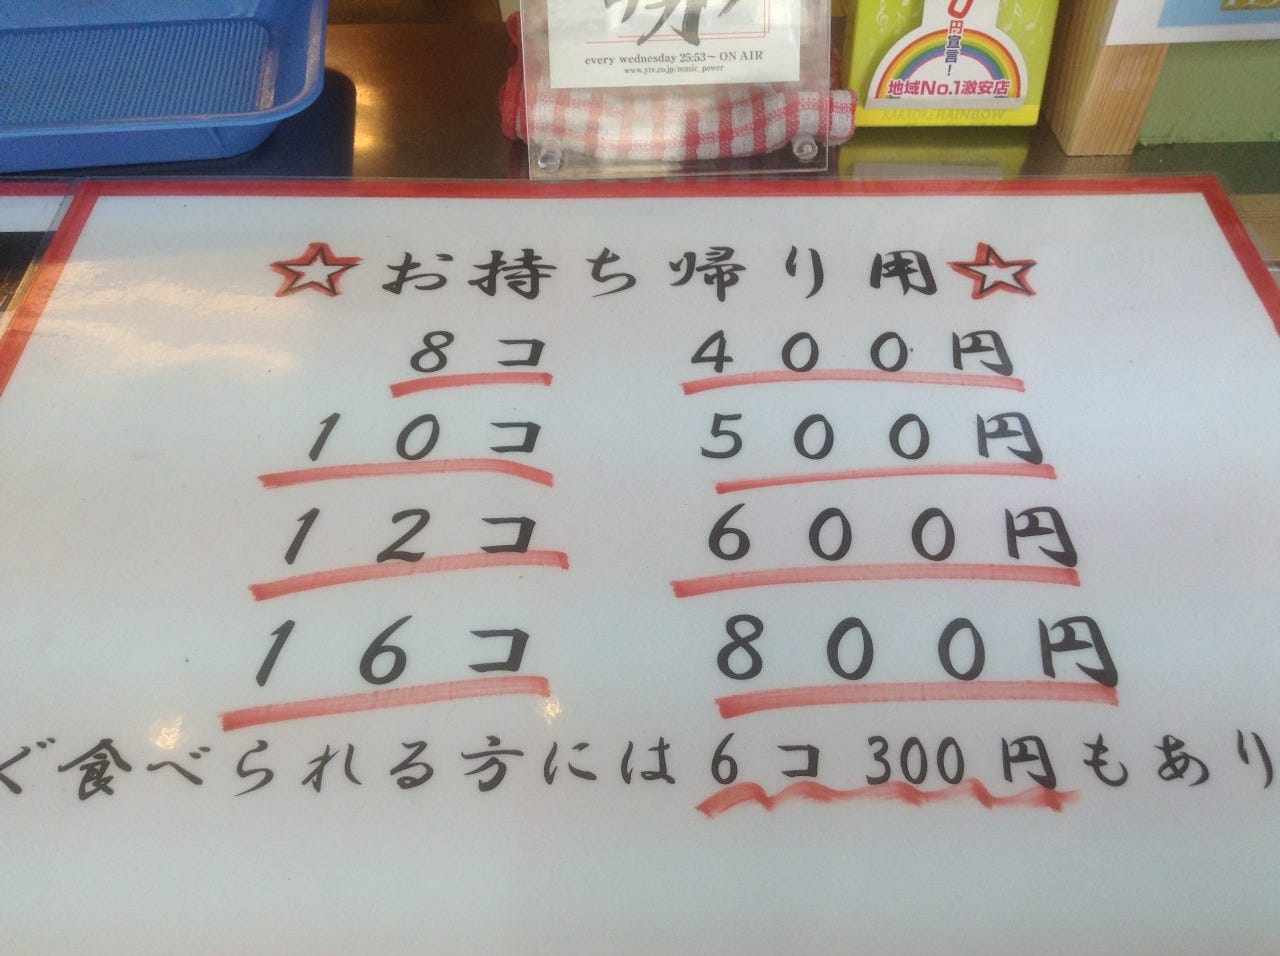 every wednesday 25:53~ ON AIR
www.ytv.co.jp/music_power
0円宣言!
地域No.1激安店
KARAOKE RAINBOW
☆お持ち帰り用☆
8コ 400円
10コ 500円
12コ 600円
16コ 800円
ぐ食べられる方には6コ300円もあり